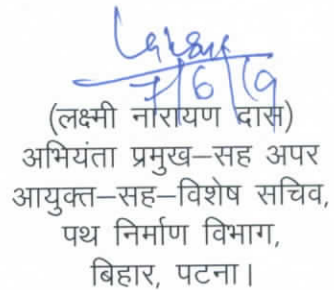 7/6/19
(लक्ष्मी नारायण दास)
अभियंता प्रमुख–सह अपर
आयुक्त–सह–विशेष सचिव,
पथ निर्माण विभाग,
बिहार, पटना।